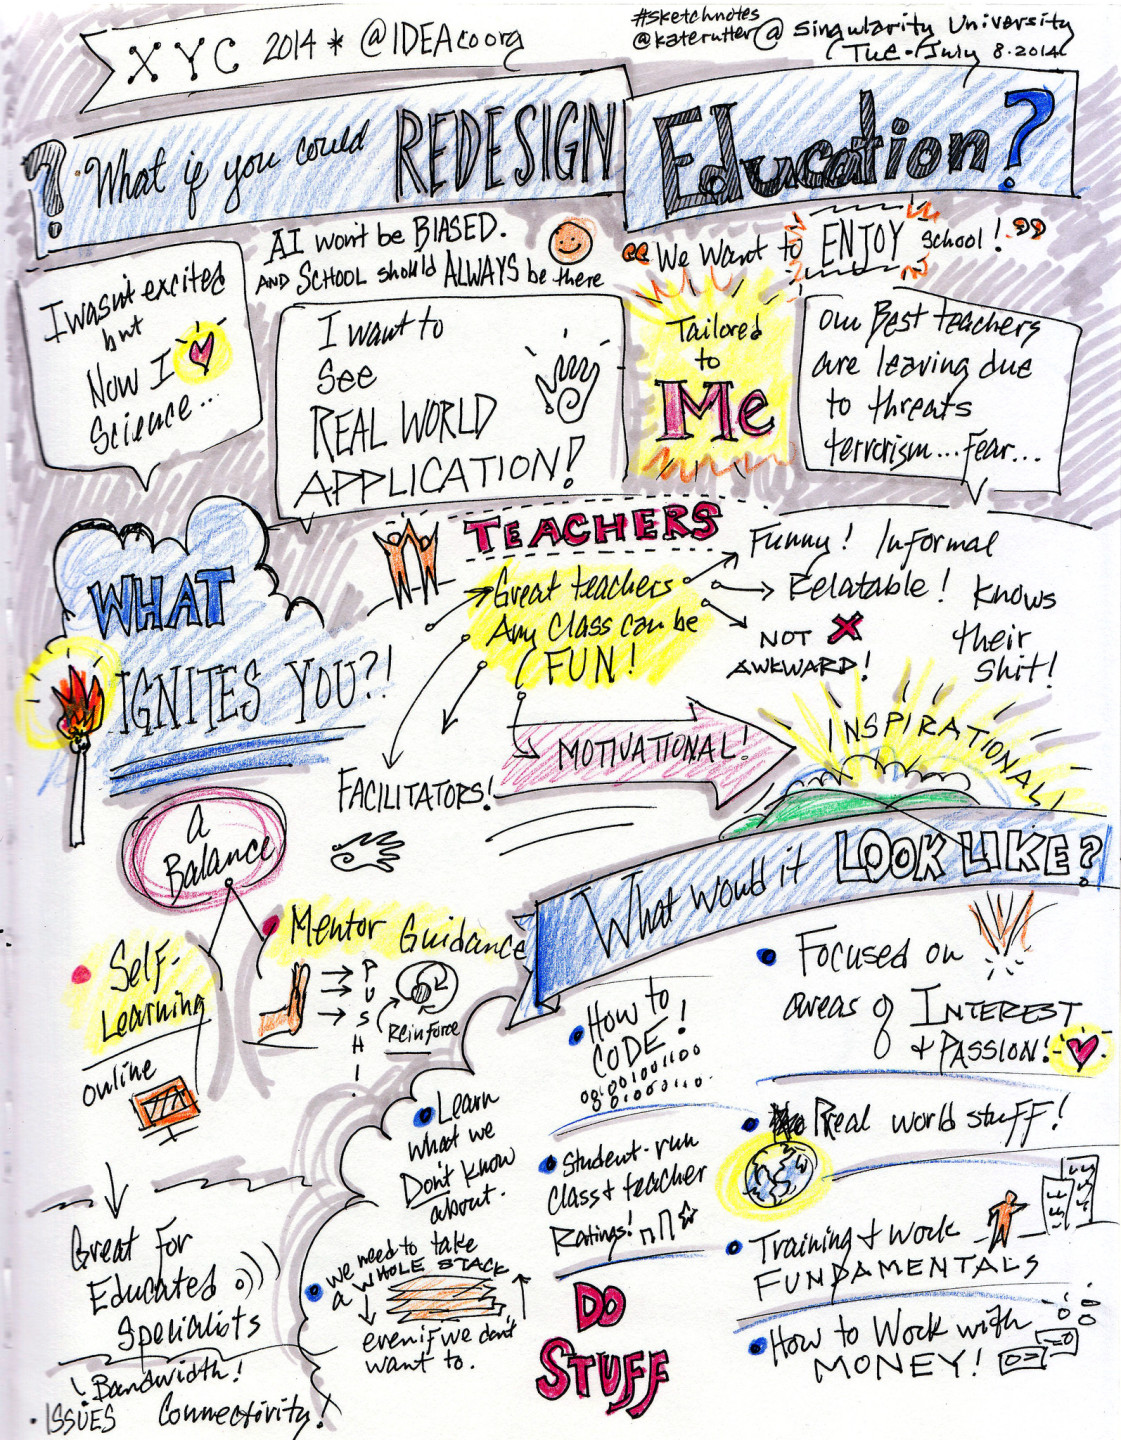 XYC 2014 * @IDEAcoorg
#sketchnotes
@katerutter @ Singularity University
Tue. July 8. 2014
? What if you could REDESIGN Education?
AI won't be BIASED.
AND SCHOOL should ALWAYS be there
"We Want to ENJOY School!"
I wasn't excited
but
Now I
Science...
I want to
See
REAL WORLD
APPLICATION!
Tailored
to
Me
Our Best teachers
are leaving due
to threats
terrorism... Fear...
WHAT
IGNITES YOU?!
TEACHERS
Great teachers
Any Class can be
FUN!
Funny! Informal
Relatable!
NOT X
AWKWARD!
Knows
their
Shit!
MOTIVATIONAL!
INSPIRATIONAL!
FACILITATORS!
a
Balance
Self-
Learning
online
Mentor Guidance
PUSH!
Reinforce
Great For
Educated
Specialists
! Bandwidth!
• ISSUES Connectivity!
What would it LOOK LIKE?
Learn
what we
Don't know
about.
we need to take
a WHOLE STACK
even if we don't
want to.
How to
CODE!
Student-run
Class & teacher
Ratings!
DO
STUFF
Focused on
areas of INTEREST
+ PASSION!
Real world stuff!
Training & Work
FUNDAMENTALS
How to Work with
MONEY!